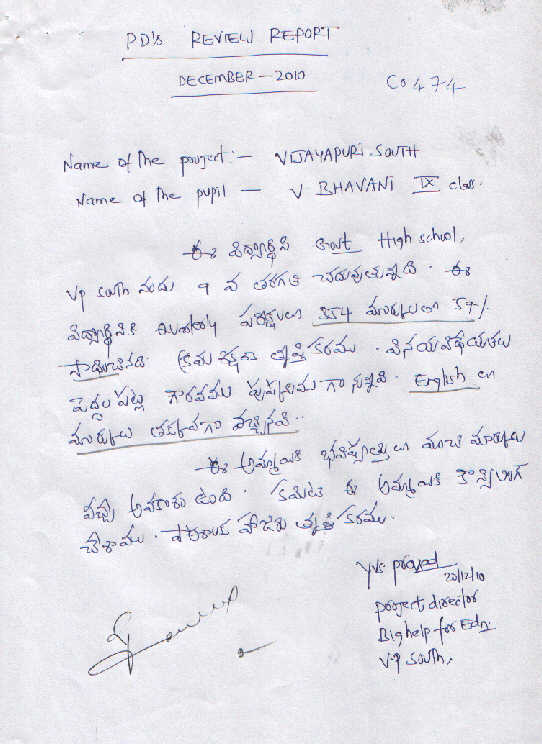 PD's REVIEW REPORT
DECEMBER - 2010
Co 474
Name of the project:- VIJAYAPURI.SOUTH
Name of the pupil - V BHAVANI IX class.
ఈ విద్యార్థిని Govt High school,
V.p south నందు 9 వ తరగతి చదువుతున్నది. ఈ
విద్యార్థిని పరీక్షలలో 354 మార్కులు 59%
సాధించినది క్రమశిక్షణ తృప్తికరము. వినయవిధేయతలు
పెద్దల పట్ల గౌరవము పుష్కలముగా ఉన్నవి. English లో
మార్కులు తక్కువగా వచ్చినవి.
ఈ అమ్మాయికి భవిష్యత్తులో మంచి మార్కులు
వచ్చు అవకాశం ఉంది. కమిటి ఈ అమ్మాయికి కౌన్సిలింగ్
చేశాము. పాఠశాల హాజరు తృప్తికరము.
yvs prasad
20/12/10
project director
Bighelp for Edn.
V.p south.